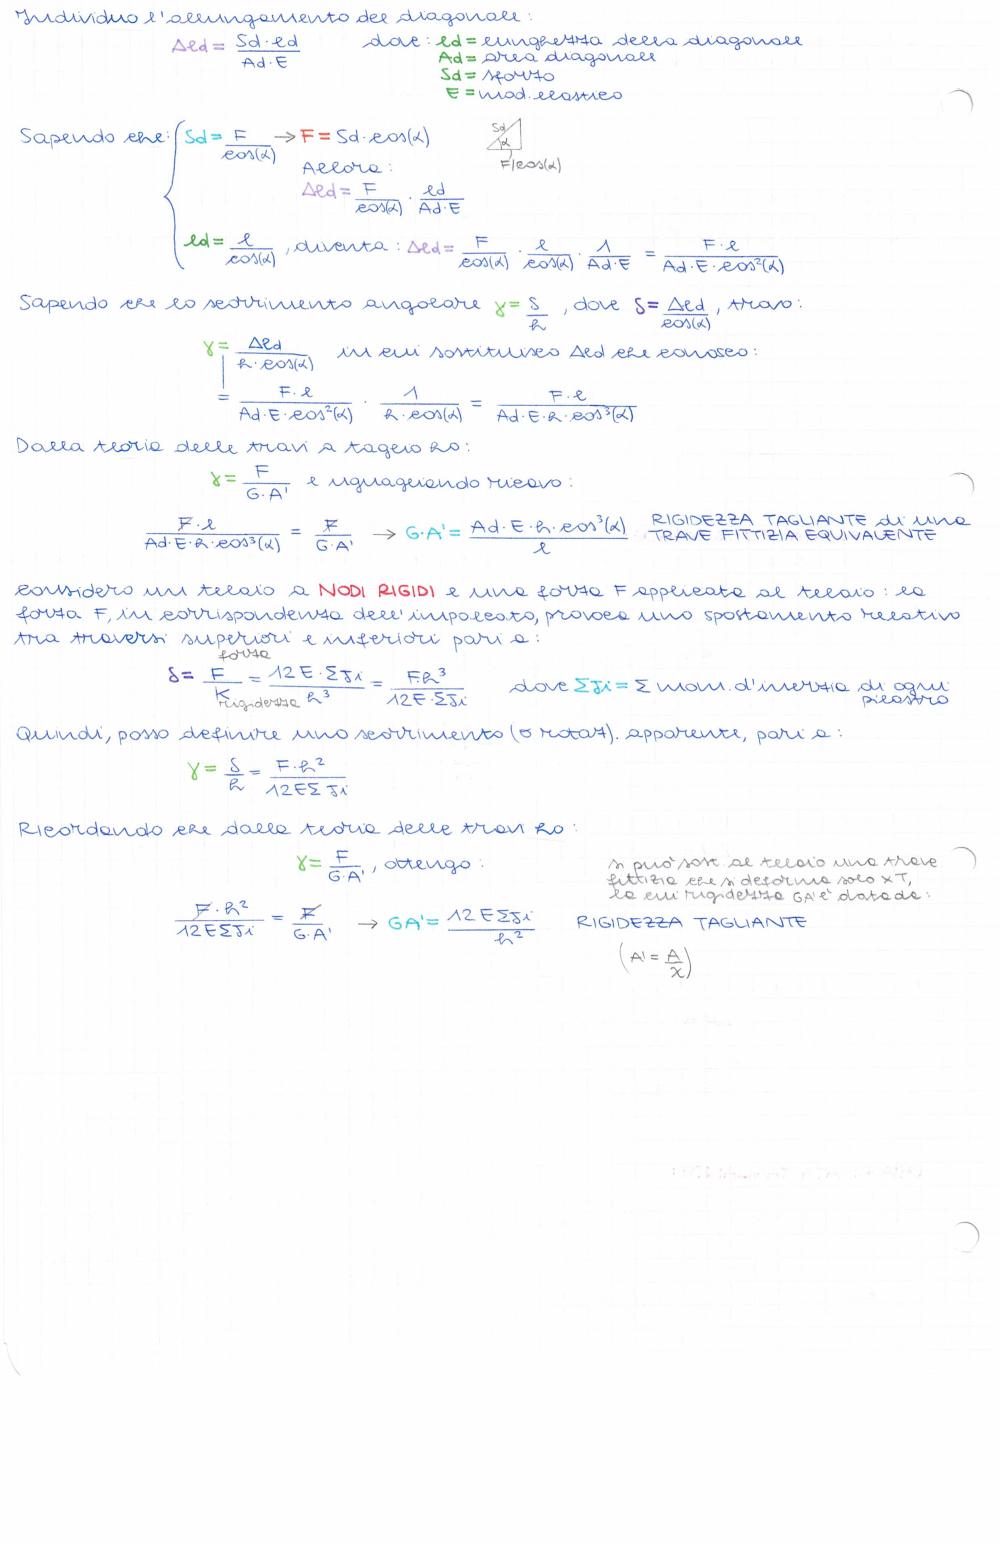 Individuo l'allungamento del diagonale:
Δld = Sd·ld / Ad·E dove: ld = lunghezza della diagonale
Ad = area diagonale
Sd = sforzo
E = mod. elastico
Sapendo che: { Sd = F / cos(α) → F = Sd·cos(α)
Sd
α
F/cos(α)
Allora:
Δld = F / cos(α) · ld / Ad·E
ld = l / cos(α) , diventa: Δld = F / cos(α) · l / cos(α) · 1 / Ad·E = F·l / Ad·E·cos²(α)
Sapendo che lo scorrimento angolare γ = δ / h , dove δ = Δld / cos(α) , trovo:
γ = Δld / h·cos(α) in cui sostituisco Δld che conosco:
= F·l / Ad·E·cos²(α) · 1 / h·cos(α) = F·l / Ad·E·h·cos³(α)
Dalla teoria delle travi a taglio ho:
γ = F / G·A' e uguagliando ricavo:
F·l / Ad·E·h·cos³(α) = F / G·A' → G·A' = Ad·E·h·cos³(α) / l RIGIDEZZA TAGLIANTE di una
TRAVE FITTIZIA EQUIVALENTE
Considero un telaio a NODI RIGIDI e una forza F applicata al telaio: la
forza F, in corrispondenza dell'impalcato, provoca uno spostamento relativo
tra traversi superiori e inferiori pari a:
forza
δ = F / K = 12E·ΣJi / h³ = F·h³ / 12E·ΣJi dove ΣJi = Σ mom. d'inerzia di ogni
rigidezza
pilastro
Quindi, posso definire uno scorrimento (o rotaz). apparente, pari a:
γ = δ / h = F·h² / 12EΣJi
Ricordando che dalla teoria delle travi ho:
γ = F / G·A' , ottengo:
si può sost. al telaio una trave
fittizia che si deforma solo x T,
la cui rigidezza GA' è data da:
F·h² / 12EΣJi = F / G·A' → GA' = 12EΣJi / h² RIGIDEZZA TAGLIANTE
(A' = A / χ)